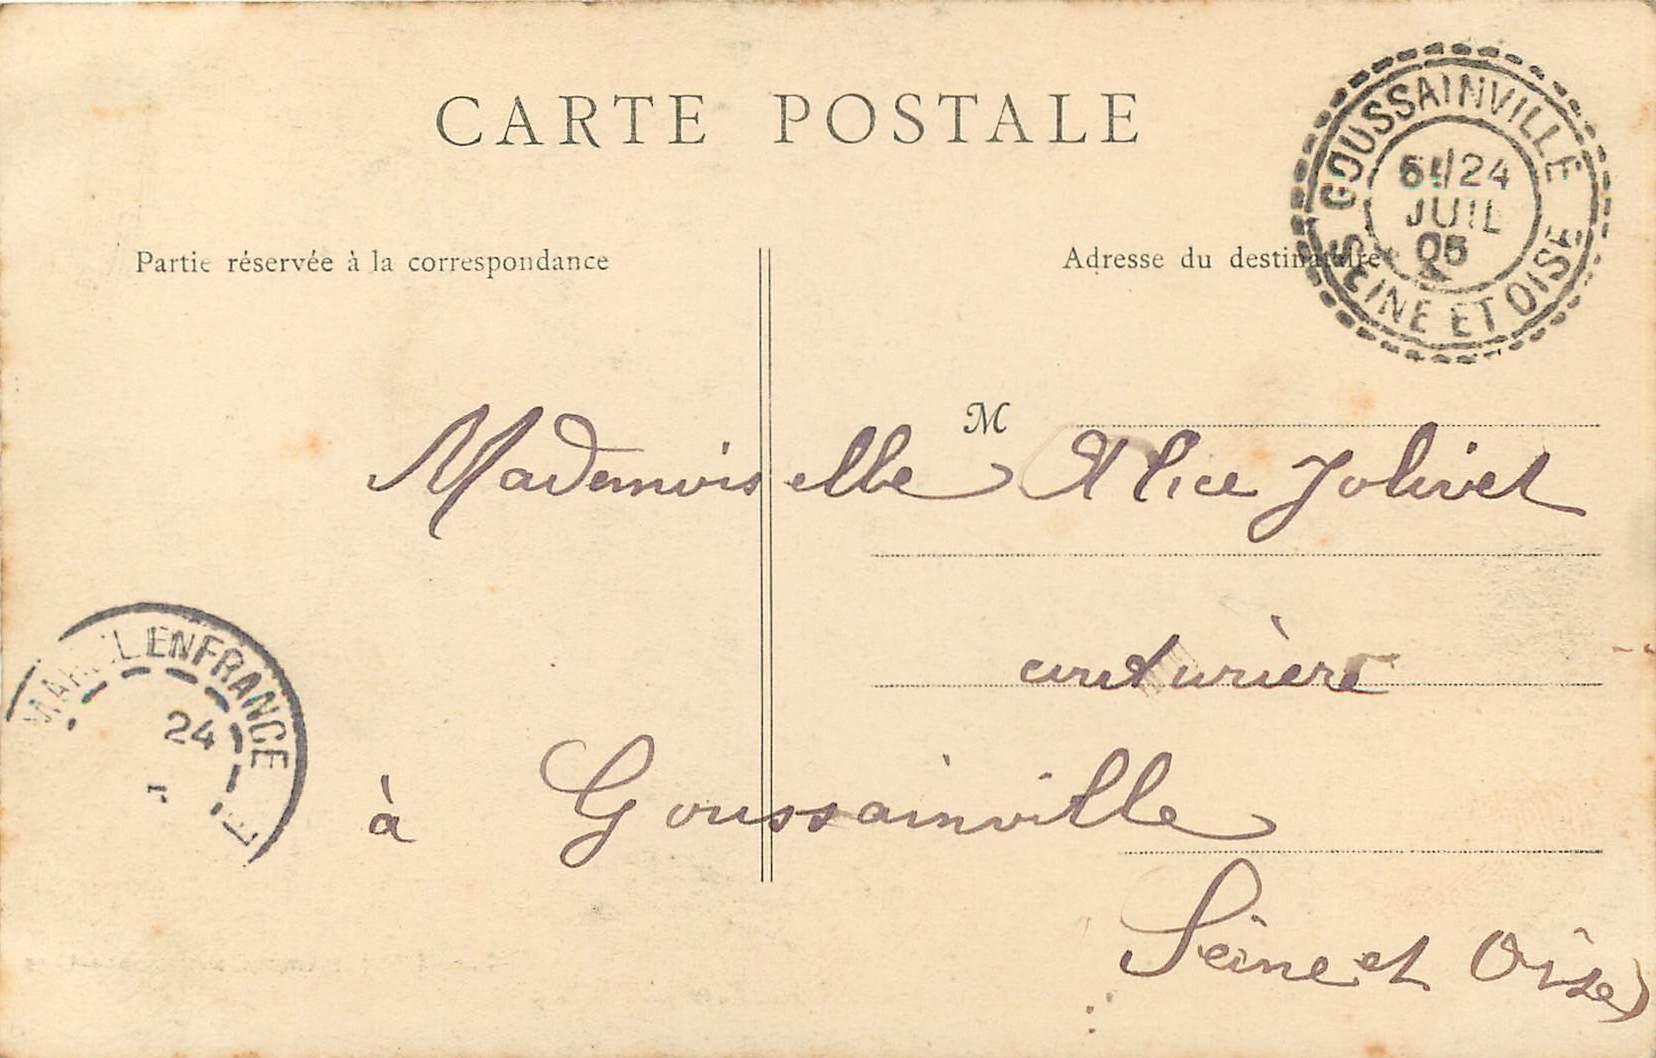 CARTE POSTALE
GOUSSAINVILLE
24
JUIL
05
SEINE ET OISE
Partie réservée à la correspondance
Adresse du destinataire
M
Mademoiselle Alice Jolivet
couturière
à Goussainville
Seine et Oise)
EN FRANCE
24